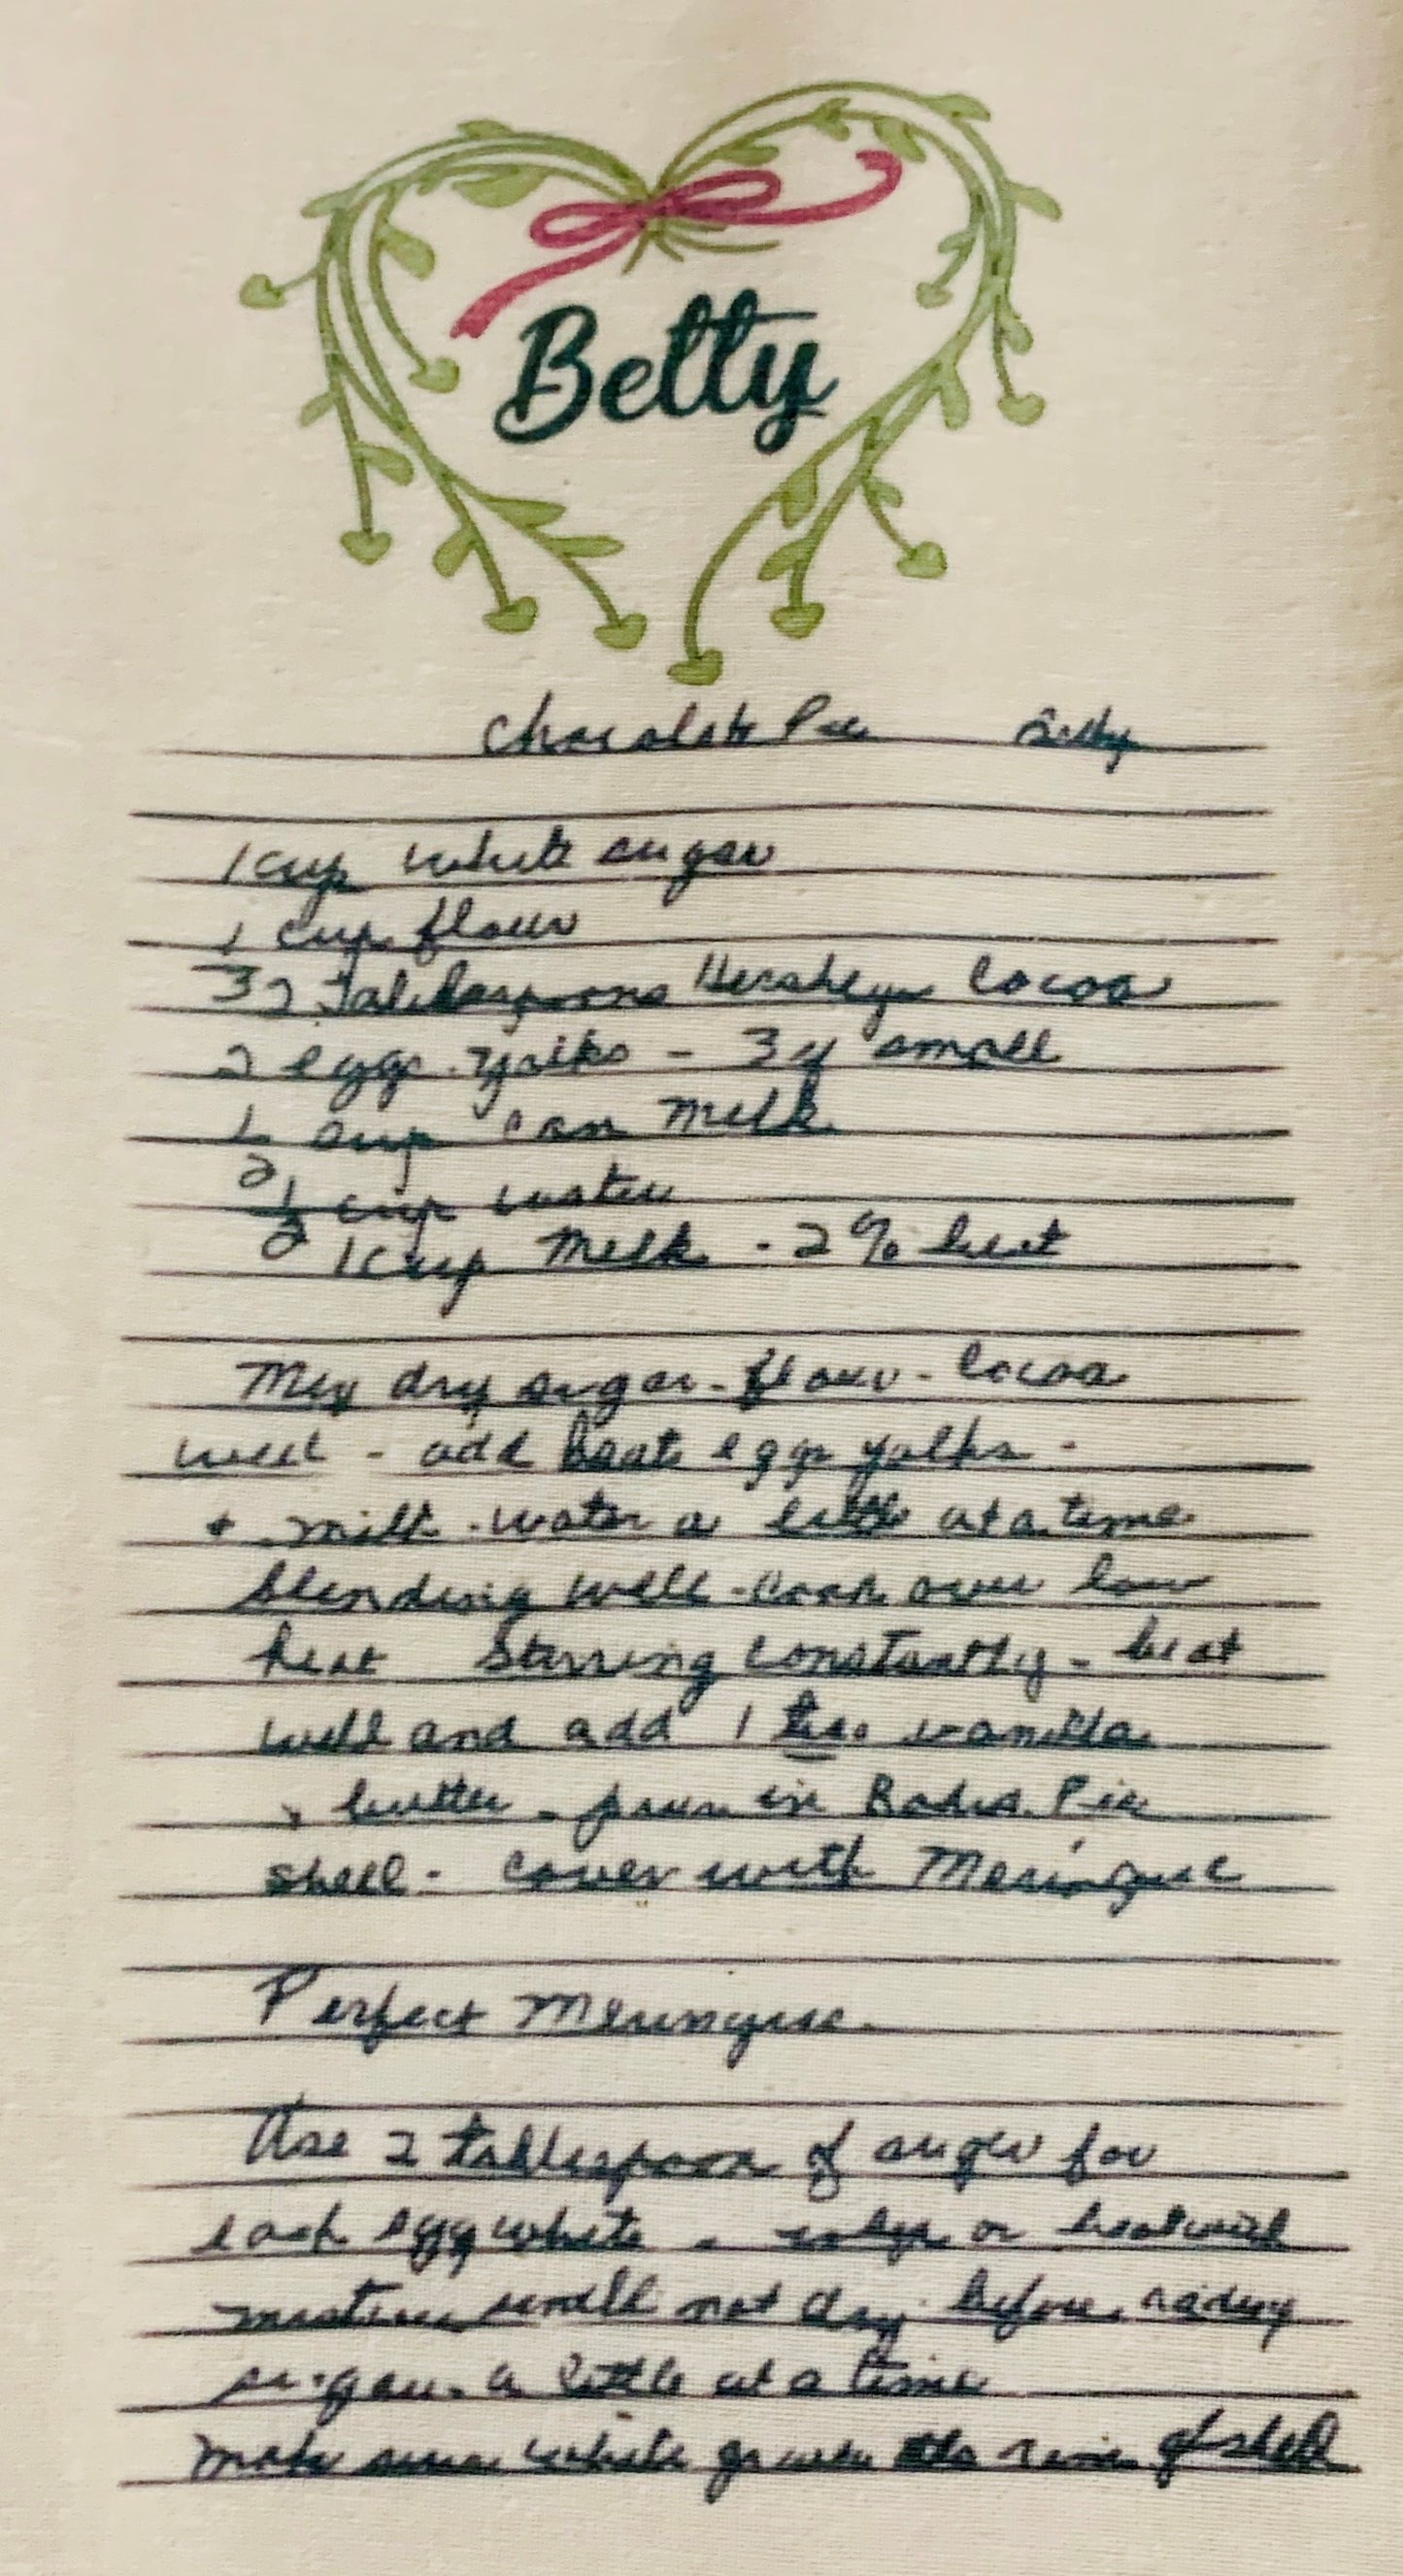 Betty
Chocolate Pie Betty
1 cup white sugar
1 cup flour
3 Tablespoons Hersheys Cocoa
2 eggs yolks - 3 if small
1 cup can milk
2
1/2 cup water
1 cup milk - 2% best
Mix dry sugar - flour - cocoa
well - add beat eggs yolks -
+ milk - water a little at a time
blending well - cook over low
heat Stirring constantly - beat
well and add 1 tsp vanilla
+ butter - pour in Baked Pie
shell - cover with Meringue
Perfect Meringue
Use 2 tablespoon of sugar for
each egg white - or beat until
mixture small not dry before adding
sugar a little at a time
make sure white go over the rim of shell